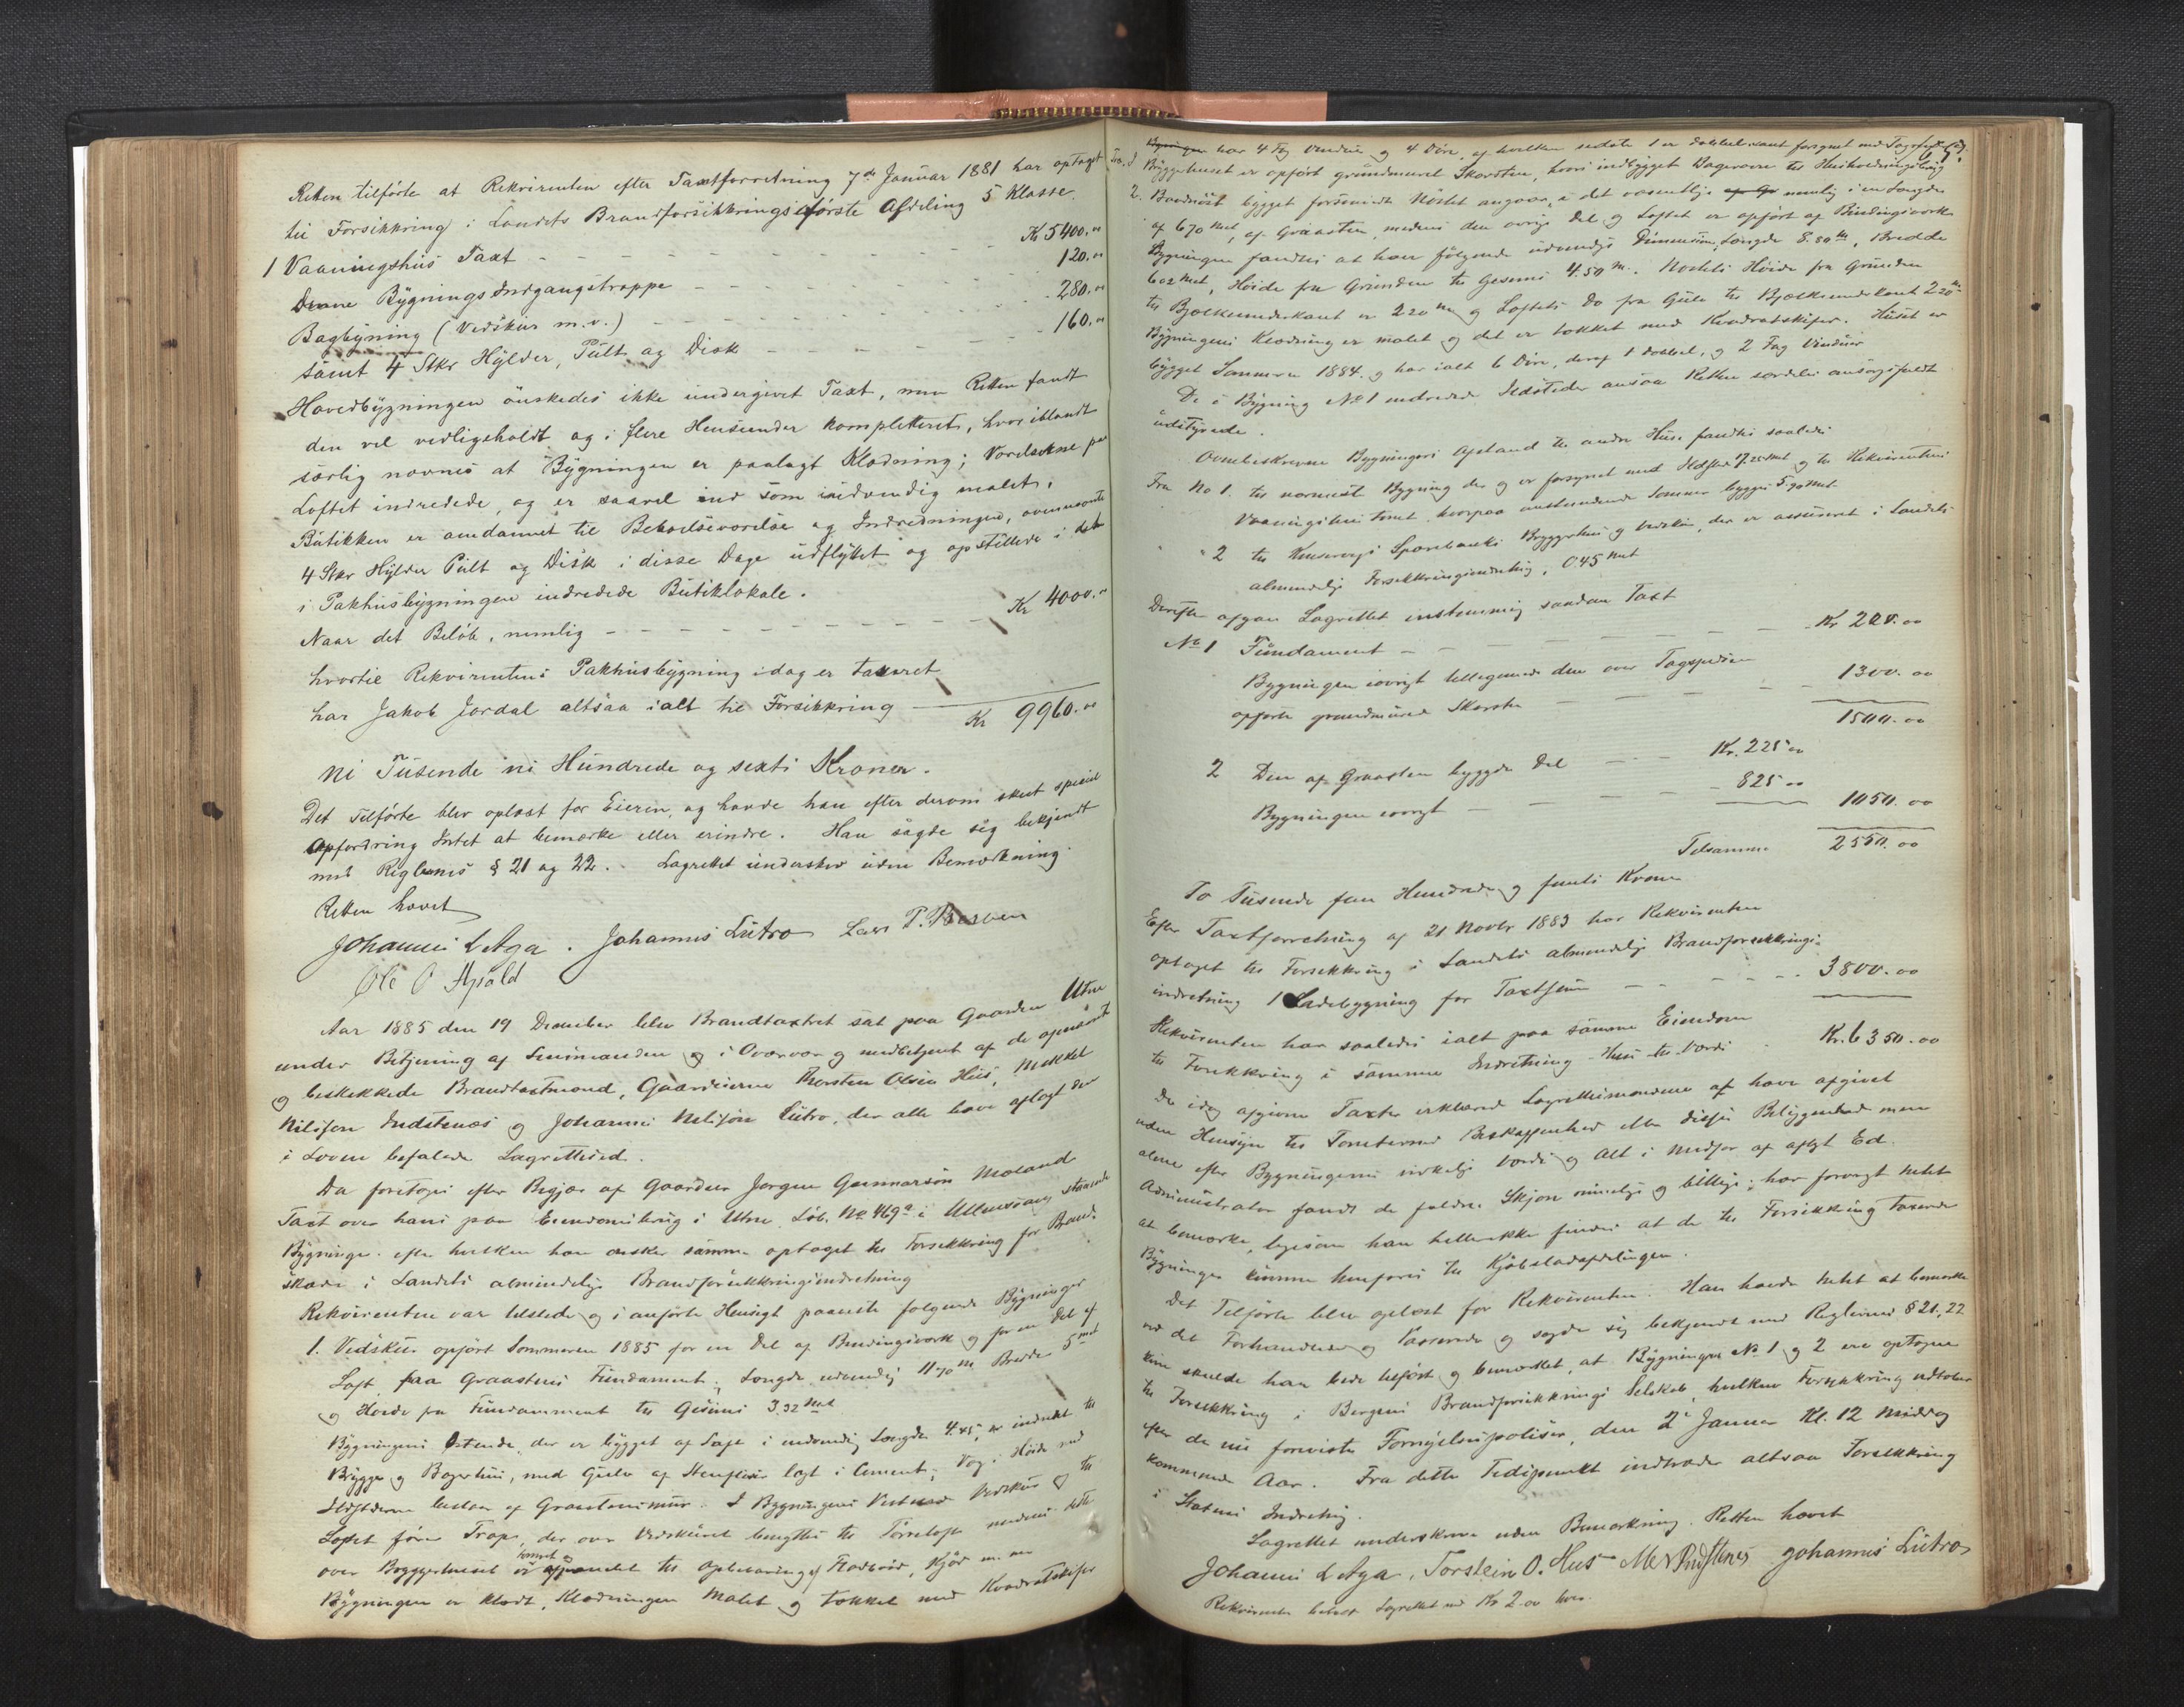 Retten tilførte at Rekvirenten efter Taxtforretning 7de Januar 1881 har optaget
til Forsikkring i Landets Brandforsikkrings første Afdeling 5 Klasse.
1 Vaaningshus Taxt - - - Kr 5400.00
Denne Bygnings Indgangstrappe - - - 120.00
Bagbygning (Vedskur m.v.) - - - 280.00
samt 4 Stkr Hylder, Pult og Disk - - - 160.00
Hovedbygningen ønskedes ikke undergivet Taxt, men Retten fandt
den vel vedligeholdt og i flere Henseender kompletteret, hvoriblandt
særlig nævnes at Bygningen er paalagt Klædning; Værelserne paa
Loftet indredede, og er saavel ind som udvendig malet.
Butikken er omdannet til Beboelsesværelse og Indredningen, ovennævnte
4 Stkr Hylder Pult og Disk i disse Dage udflyttet og opstillede i det
i Pakhusbygningen indredede Butiklokale.
Naar det Beløb, nemlig - - - Kr 4000.00
hvortil Rekvirentens Pakhusbygning idag er taxeret
har Jakob Jordal altsaa ialt til Forsikkring - Kr 9960.00
Ni Tusende ni Hundrede og sexti Kroner.
Det Tilførte blev oplæst for Eieren, og havde han efter derom skeet speciel
Opfordring Intet at bemærke eller erindre. Han sagde sig bekjendt
med Reglernes § 21 og 22. Lagrettet underskrev uden Bemærkning.
Retten hævet
Johannes L Aga. Johannes Lutro Lars P.
Ole O Apold
Aar 1885 den 19 December blev Brandtaxtret sat paa Gaarden Utne
under Betjening af Lensmanden og i Overvær og medbetjent af de opnævnte
og beskikkede Brandtaxtmænd, Gaardeierne Thorsten Olsen Hus, Mikkel
Nilssen Indstenæs og Johannes Nilssøn Lutro, der alle have aflagt den
i Loven befalede Lagrettesed.
Da foretoges efter Begjær af Gaardeier Jørgen Gunnarsøn Moland
Taxt over hans paa Eiendomsbrug i Utne Løb. No 469a i Ullensvang staaende
Bygninger efter hvilken han ønsker samme optaget til Forsikkring for Brand-
skade i Landets almindelige Brandforsikkringsindretning
Rekvirenten var tilstede og i anførte Hensigt paaviste følgende Bygninger
1. Vedskur opført Sommeren 1885 for en Del af Bindingsverk og for en Del af
Laft paa Graastens Fundament; Længde udvendig 11.70 m Bredde 5 met
og Høide fra Fundamment til Gesims 3.32 met
Bygningens Østende, der er bygget af Laft i udvendig Længde 4.45, er indrettet til
Brygge og Bagerhus, med Gulv af Stenfliser lagt i Cement; Væg i Høide med
Ildstederne bestaar af Graastensmur. I Bygningens Vestende Vedskur og til
Loftet fører Trappe, der over Vedskuret benyttes til Tørreloft medens dette
over Bryggerhuset er
Bygningen er klædt, Klædningen Malet og tækket med Kvadratskifer
Bygningen har 4 Fag Vinduer og 4 Døre, af hvilken sidste 1 er dobbelt samt forsynet med Tagrender.
Bryggehuset er opført grundmuret Skorsten, hvori indbygget Bagerovn
2. Baadnøst bygget forsaavidt Nøstet angaar, i det væsentlige nemlig i en Længde
af 6.70 met, af Graasten, medens den øvrige Del og Loftet er opført af Bindingsverk
Bygningen fandtes at have følgende udvendige Dimension, Længde 8.80 m, Bredde
6.02 met, Høide fra Grunden til Gesims 4.50 m. Nøstets Høide fra Grunden
til Bjælkeunderkant er 2.20 m og Loftets Do fra Gulv til Bjælkeunderkant 2.20 m
Bygningens Klædning er malet og det er tækket med Kvadratskifer. Huset er
bygget Sommeren 1884 og har ialt 6 Døre, deraf 1 dobbel, og 2 Fag Vinduer
De i Bygning No 1 indredede Ildsteder ansaa Retten særdeles
udstyrede.
Ovenbeskrevne Bygningers Afstand til andre Huse fandtes saaledes
Fra No 1. til nærmeste Bygning der og er forsynet med Ildsted 17.25 met og til Rekvirentens
Vaaningshus Tomt hvorpaa anstundende Sommer bygges 5.90 met
" " 2 til Kinservigs Sparebanks Bryggerhus og Vedskur, der er assureret i Landets
almindelige Forsikkringsindretning, 0.45 met
Derefter afgav Lagrettet enstemmig saadan Taxt
No 1 Fundament - - - Kr 200.00
Bygningen iøvrigt tilligemed den over Tagspidsen
opførte grundmurede Skorsten - - - 1300.00
1500.00
2 Den af Graasten byggede Del - - - Kr. 225.00
Bygningen iøvrigt - - - 825.00
1050.00
Tilsammen 2550.00
To Tusende fem Hundrede og femti Kroner
Efter Taxtforretning af 21 Novbr 1883 har Rekvirenten
optaget til Forsikkring i Landets almindelige Brandforsikkrings-
indretning 1 Ladebygning for Taxtsum - - - 3800.00
Rekvirenten har saaledes ialt paa samme Eiendom
til Forsikkring i samme Indretning Huse til Værdi - Kr. 6350.00
De idag afgivne Taxter erklærede Lagrettesmændene at have afgivet
uden Hensyn til Tomternes Beskaffenhed eller disses Beliggenhed men
alene efter Bygningernes virkelige Værdi og Alt i Medfør af aflagt Ed.
Administrator fandt de faldne Skjøn rimelige og billige; har forøvrigt Intet
at bemærke, ligesom han heller ikke finder at de til Forsikkring taxerede
Bygninger kunne henføres til Kjøbstadsafdelingen.
Det Tilførte blev oplæst for Rekvirenten. Han havde Intet at bemærke
ved det Forhandlede og Passerede og sagde sig bekjendt med Reglernes § 21, 22
skulde han bede tilført og bemærket, at Bygningerne No 1 og 2 ere optagne
til Forsikkring i Bergens Brandforsikkrings Selskab, hvilken Forsikkring udløber
efter de nu foreviste Fornyelsespoliser, den 2 Januar Kl. 12 Middag
kommende Aar. Fra dette Tidspunkt indtræder altsaa Forsikkring
i Statens Indretning.
Lagrettet underskrev uden Bemærkning. Retten hævet
Johannes L Aga, Torstein O. Hus Johannes Lutro
Rekvirenten betalte Lagrettet med Kr 2.00 hver.